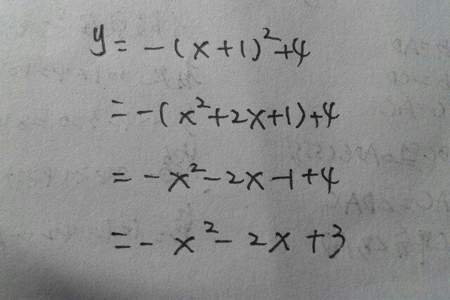 y = -(x+1)²+4
= -(x²+2x+1)+4
= -x²-2x-1+4
= -x²-2x+3